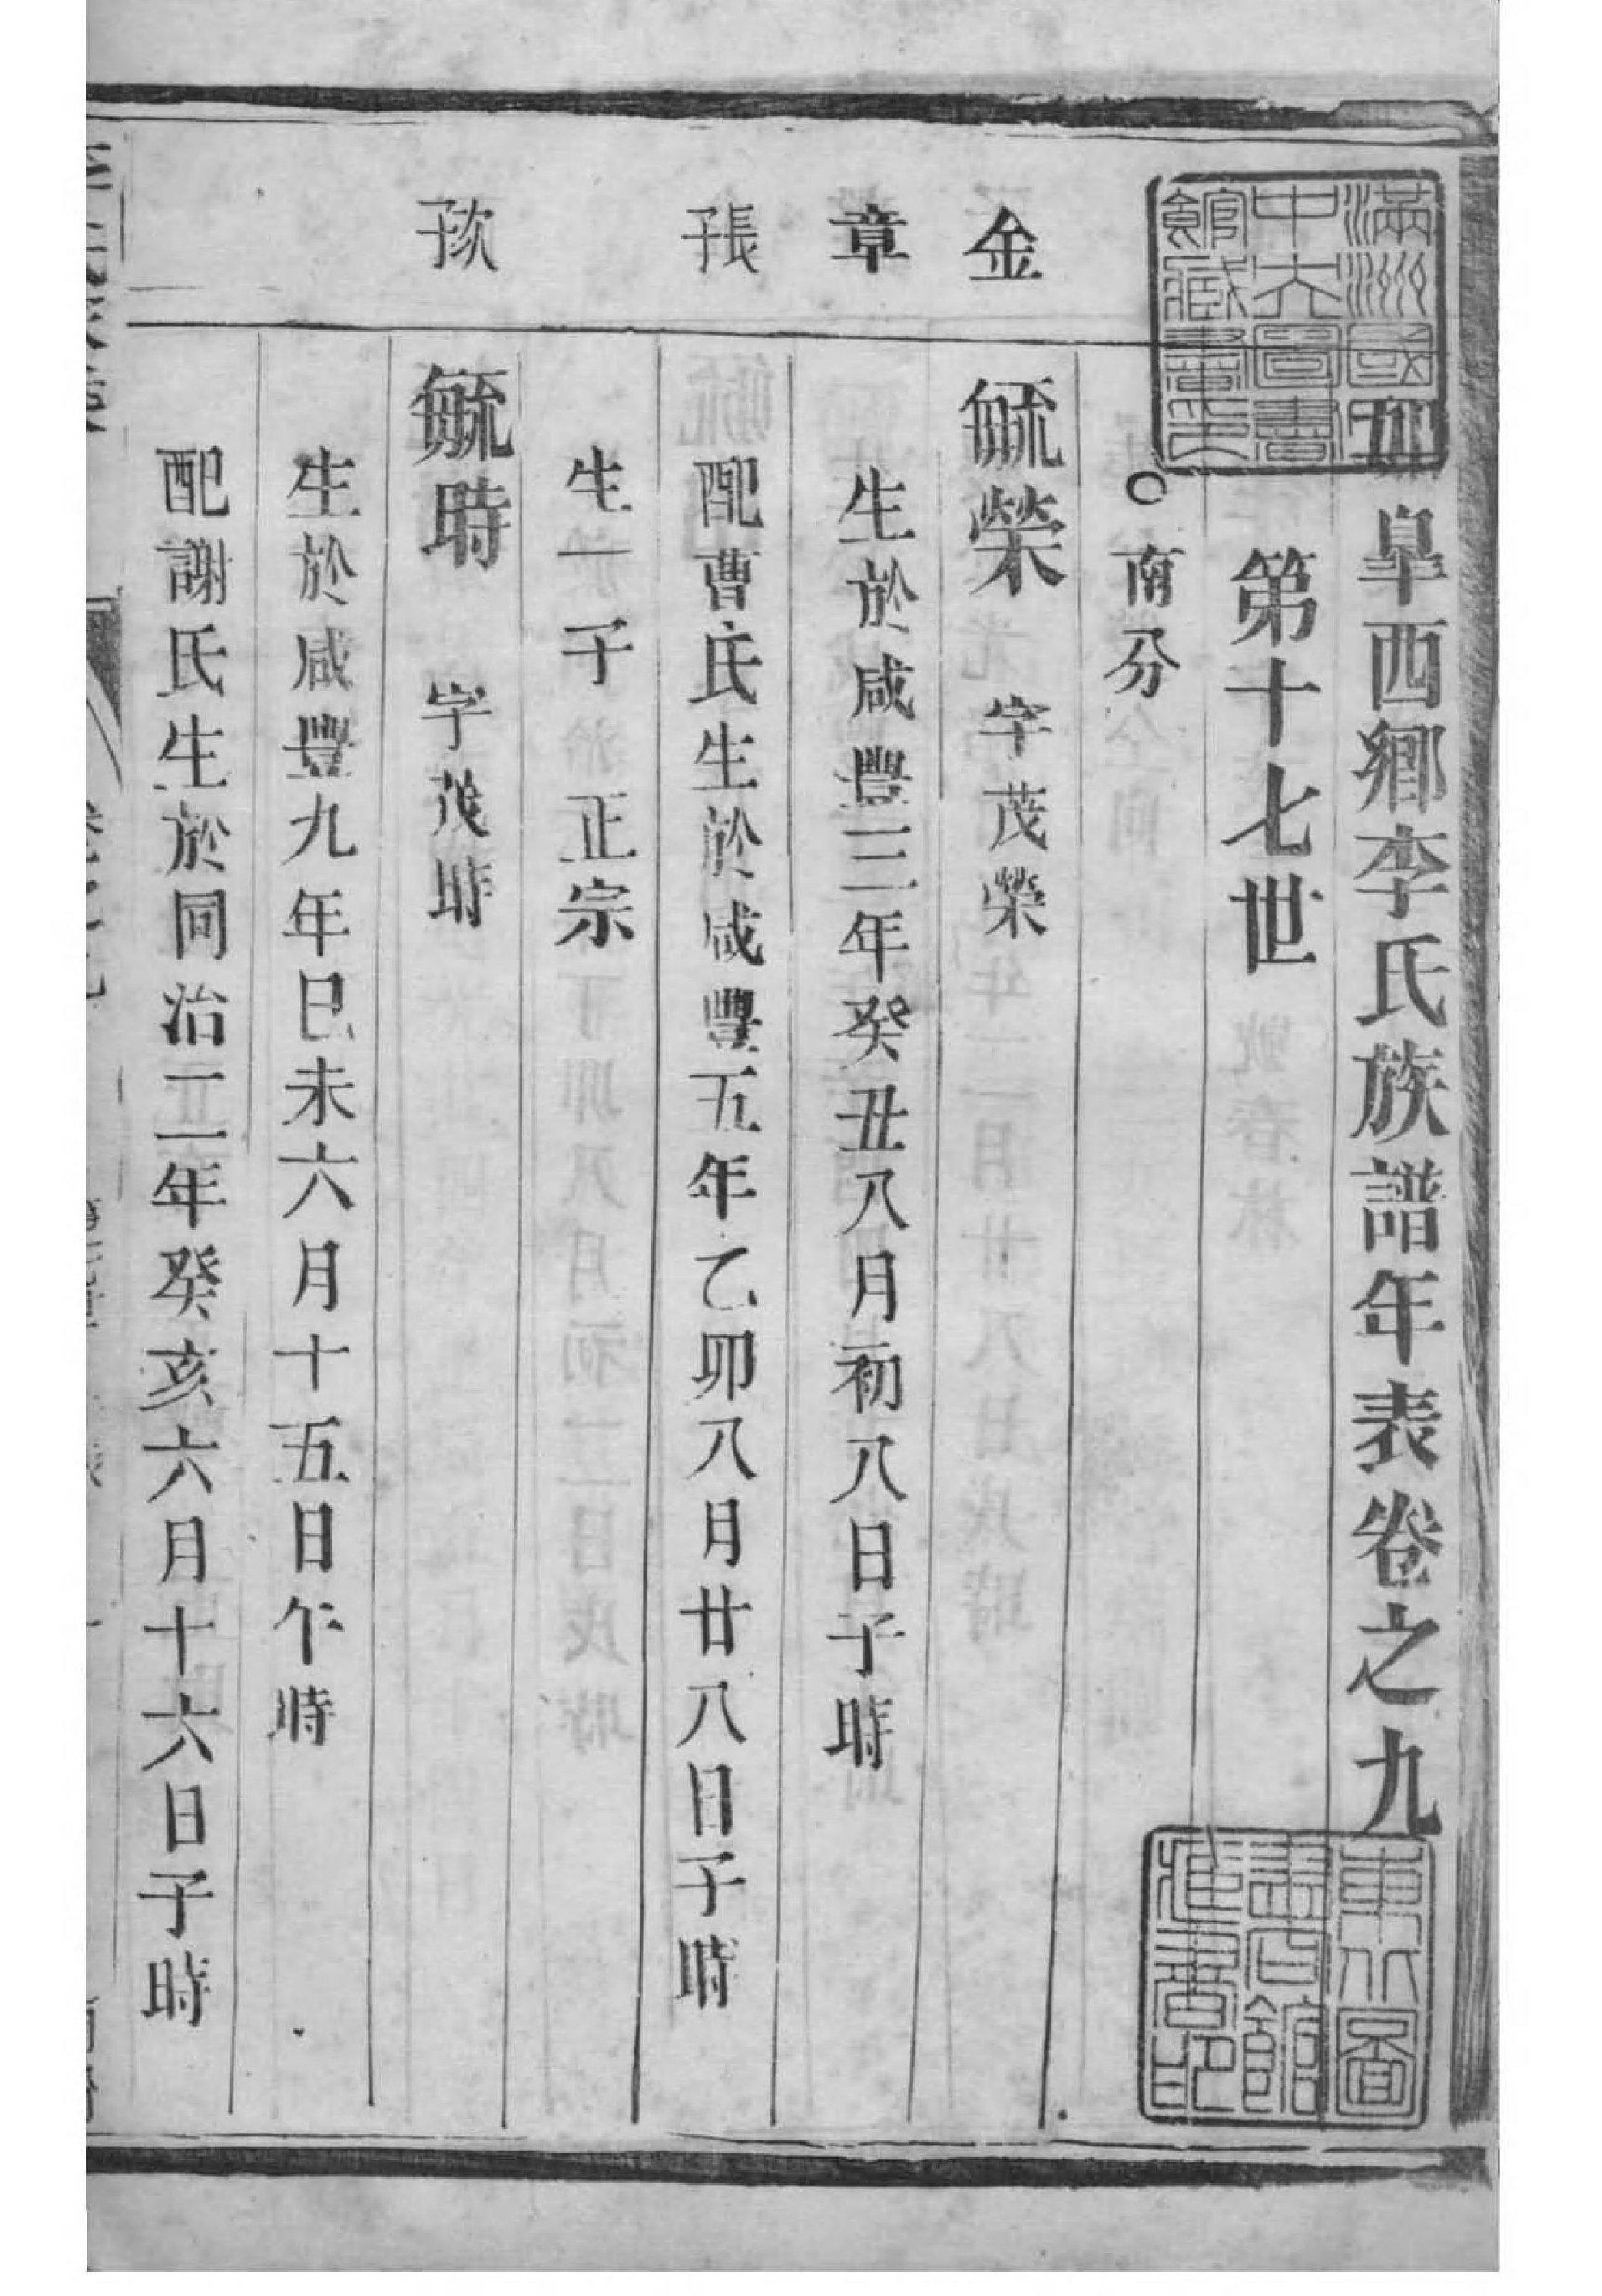 滿洲國立
中央圖書
館藏書印
如皐西鄉李氏族譜年表卷之九
第十七世
○南分
金
章
長子
次子
毓榮 字茂榮
生於咸豐三年癸丑八月初八日子時
配曹氏生於咸豐五年乙卯八月廿八日子時
生一子 正宗
毓時 字茂時
生於咸豐九年巳未六月十五日午時
配謝氏生於同治二年癸亥六月十六日子時
東北圖
書館
藏書印